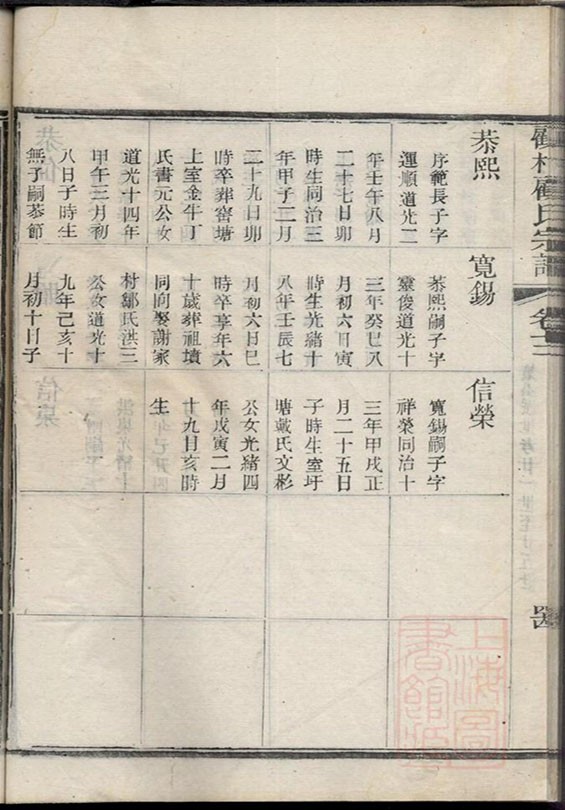 氏宗譜
卷
恭熙
序範長子字
運順道光二
年壬午八月
二十七日卯
時生同治三
年甲子二月
二十九日卯
時卒葬窰塘
上室金牛丁
氏書元公女
道光十四年
甲午三月初
八日子時生
無子嗣恭節
寬錫
恭熙嗣子字
靈俊道光十
三年癸巳八
月初六日寅
時生光緒十
八年壬辰七
月初六日巳
時卒享年六
十歲葬祖墳
同向娶謝家
村鄒氏洪三
公女道光十
九年己亥十
月初十日子
信榮
寬錫嗣子字
祥榮同治十
三年甲戌正
月二十五日
子時生室圩
塘戴氏文彬
公女光緒四
年戊寅二月
十九日亥時
生
上海圖
書館藏